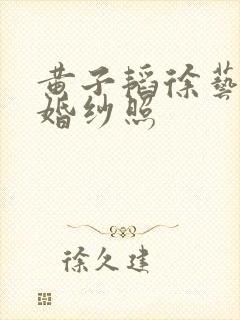 黄子韬徐藝
婚纱照
徐久建